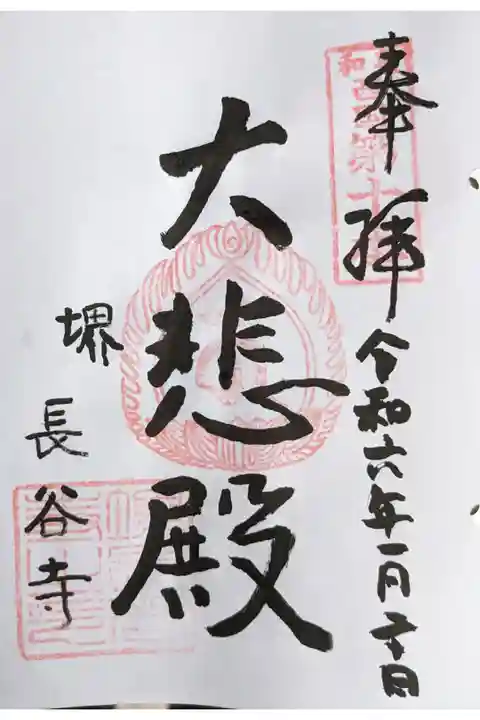 奉拝 令和六年一月二十日
大悲殿
堺 長谷寺